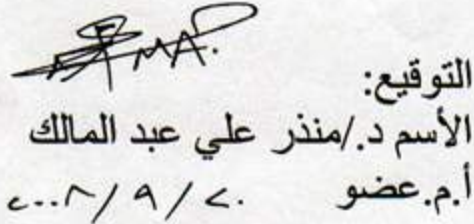 التوقيع:
الأسم د./منذر علي عبد المالك
أ.م.عضو ٢٠٠٨/٩/٢٠